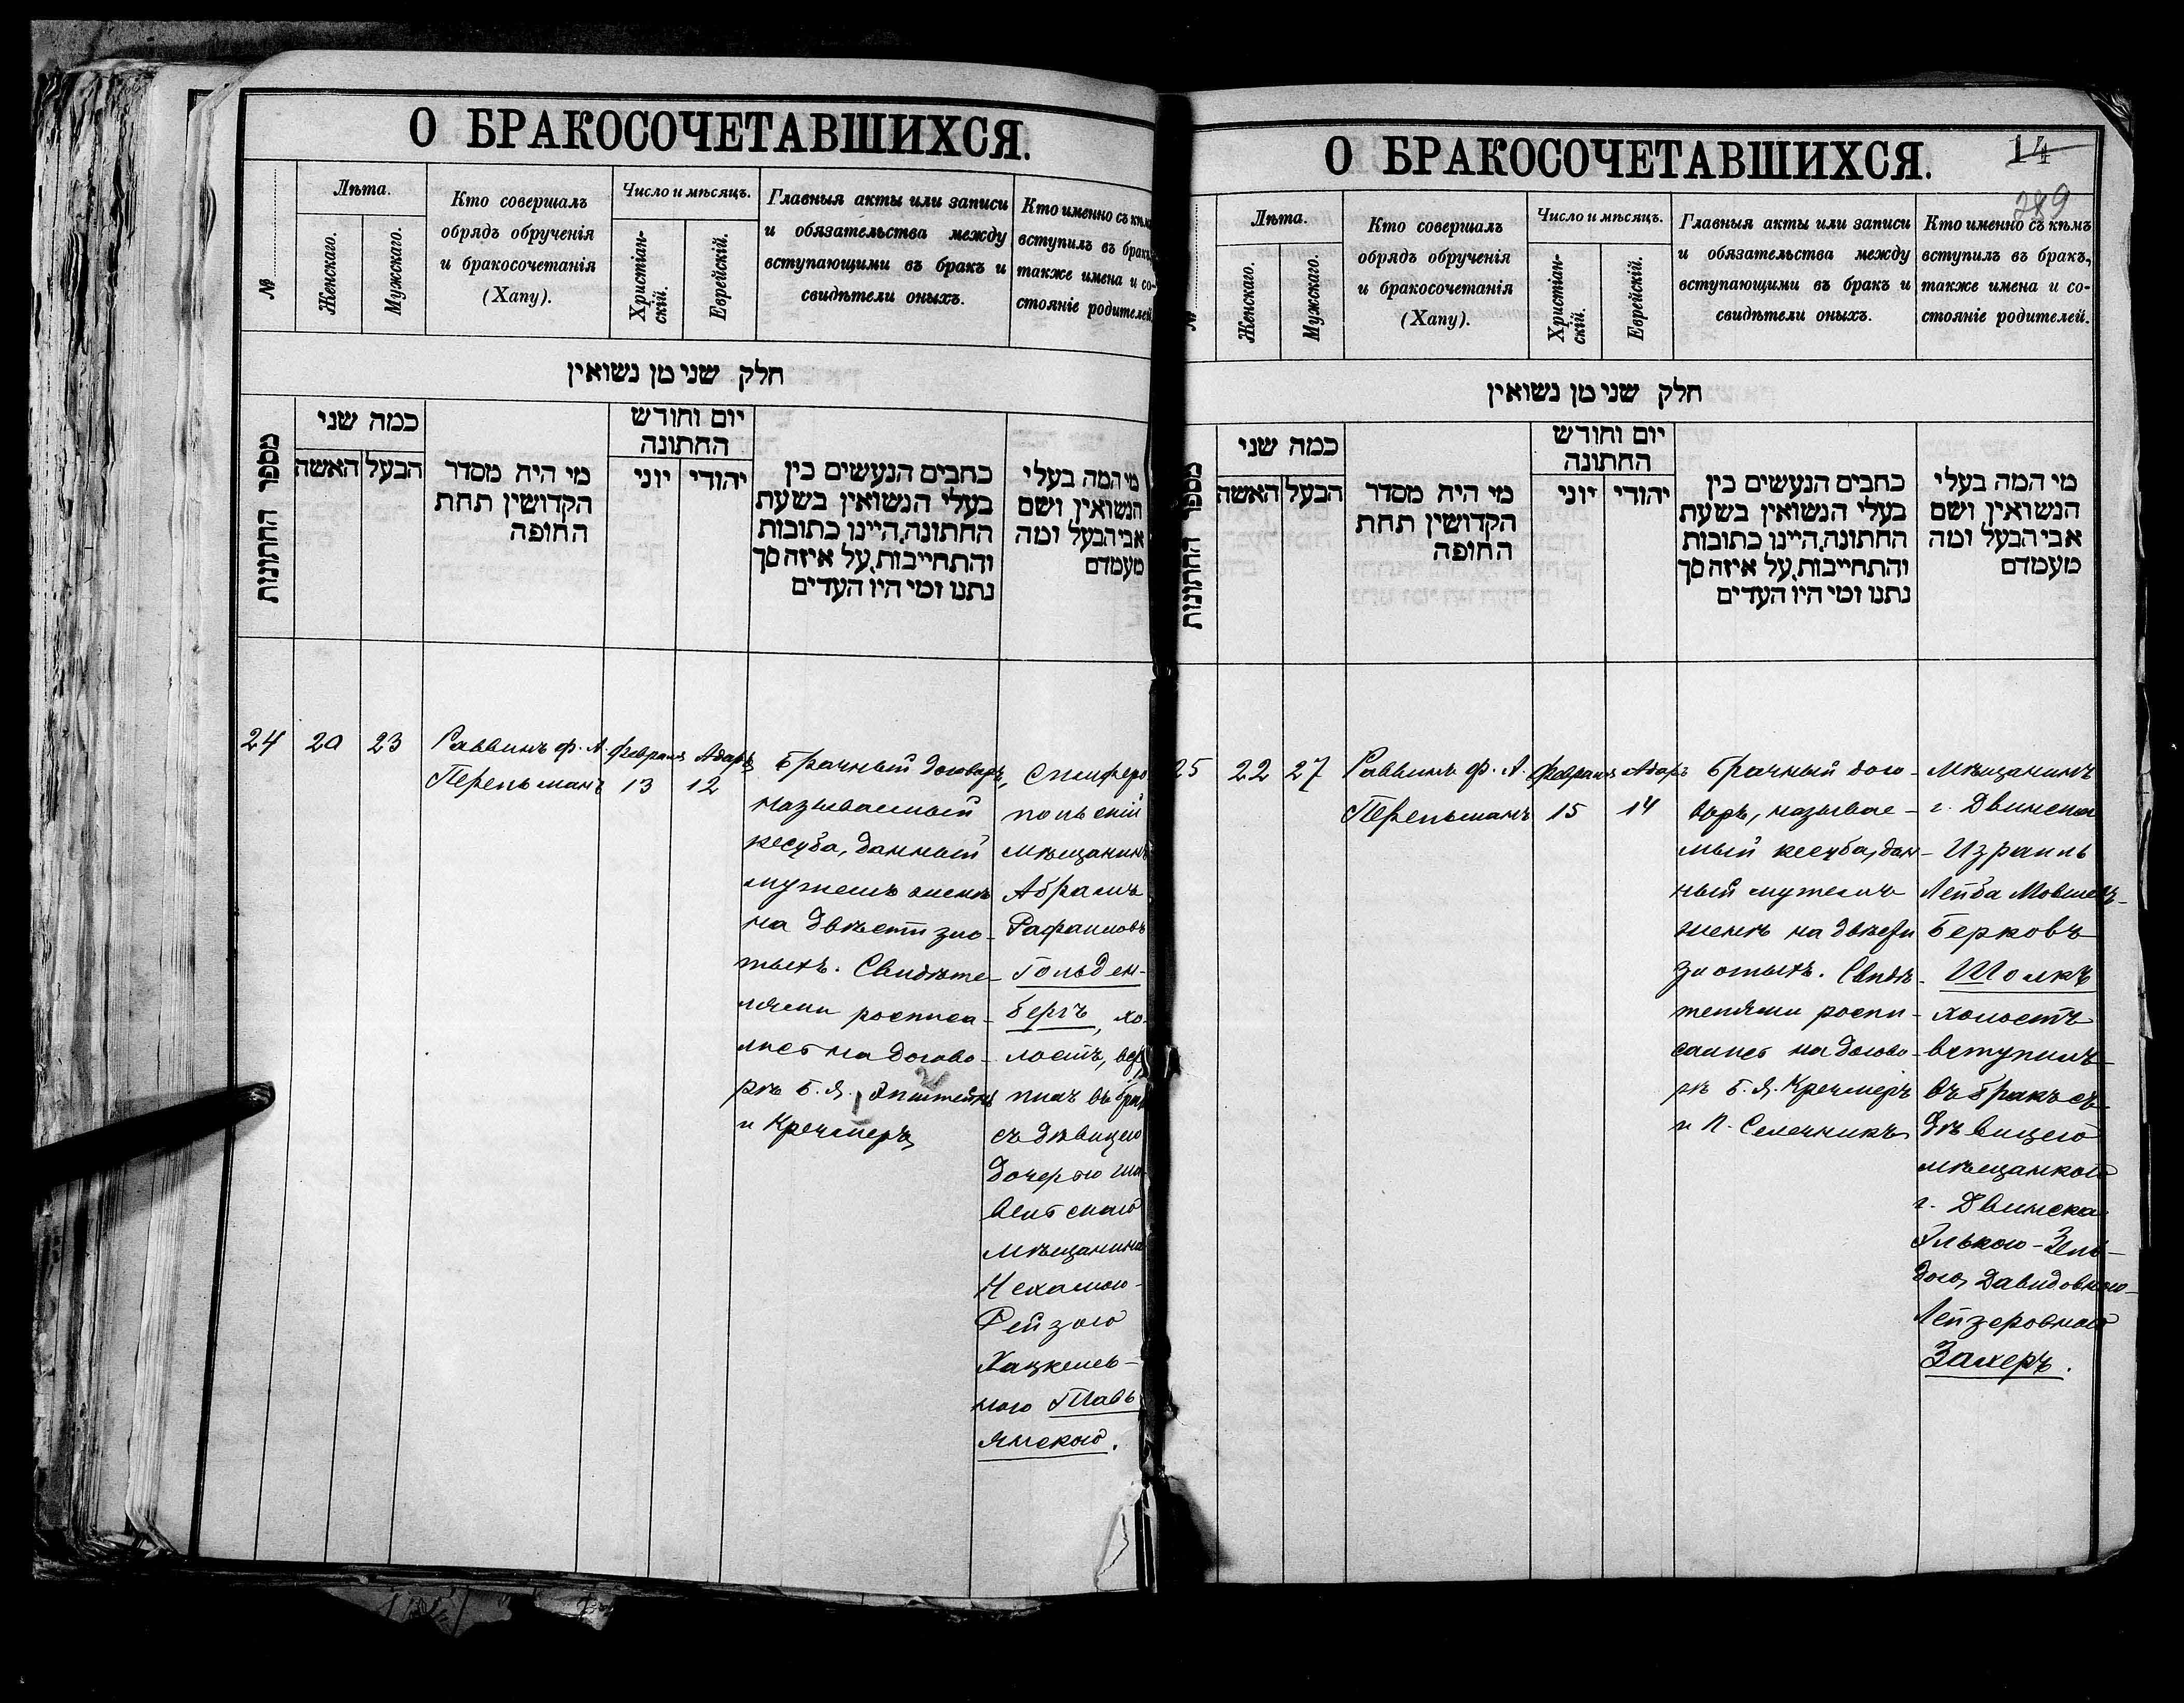 О БРАКОСОЧЕТАВШИХСЯ.
№
Лѣта.
Женскаго.
Мужскаго.
Кто совершалъ
обрядъ обрученія
и бракосочетанія
(Хапу).
Число и мѣсяцъ.
Христіан-
скій.
Еврейскій.
Главныя акты или записи
и обязательства между
вступающими въ бракъ и
свидѣтели оныхъ.
Кто именно съ кѣмъ
вступилъ въ бракъ,
также имена и со-
стояніе родителей.
חלק שני מן נשואין
מספר החתונות
כמה שני
האשה
הבעל
מי היה מסדר
הקדושין תחת
החופה
יום וחודש
החתונה
יוני
יהודי
כתבים הנעשים בין
בעלי הנשואין בשעת
החתונה, היינו כתובות
והתחייבות, על איזה סך
נתנו ומי היו העדים
מי המה בעלי
הנשואין ושם
אבי הבעל ומה
מעמדם
24
20
23
Раввинъ Ф. А.
Перельманъ
Февраля
13
Адаръ
12
Брачный договоръ,
называемый
кесуба, данный
мужемъ женѣ
на двѣсти зло-
тыхъ. Свидѣте-
лями росписа-
лись на догово-
рѣ Б. Я. Эпштейнъ
и Кречмеръ
Симферо
польскій
мѣщанинъ
Абрамъ
Рафаиловъ
Гольден-
бергъ, хо-
лостъ, всту
пилъ въ бракъ
съ дѣвицею
дочерью Ша
вельскаго
мѣщанина
Нехамою-
Рейзою
Хацкелев-
ною Плавъ
янскою.
О БРАКОСОЧЕТАВШИХСЯ.
14
289
№
Лѣта.
Женскаго.
Мужскаго.
Кто совершалъ
обрядъ обрученія
и бракосочетанія
(Хапу).
Число и мѣсяцъ.
Христіан-
скій.
Еврейскій.
Главныя акты или записи
и обязательства между
вступающими въ бракъ и
свидѣтели оныхъ.
Кто именно съ кѣмъ
вступилъ въ бракъ,
также имена и со-
стояніе родителей.
חלק שני מן נשואין
מספר החתונות
כמה שני
האשה
הבעל
מי היה מסדר
הקדושין תחת
החופה
יום וחודש
החתונה
יוני
יהודי
כתבים הנעשים בין
בעלי הנשואין בשעת
החתונה, היינו כתובות
והתחייבות, על איזה סך
נתנו ומי היו העדים
מי המה בעלי
הנשואין ושם
אבי הבעל ומה
מעמדם
25
22
27
Раввинъ Ф. А.
Перельманъ
Февраля
15
Адаръ
14
Брачный дого-
воръ, называе-
мый кесуба, дан-
ный мужемъ
женѣ на двѣсти
злотыхъ. Свидѣ-
телями роспи-
сались на догово-
рѣ Б. Я. Кречмеръ
и П. Селечникъ
Мѣщанинъ
г. Двинска
Израиль
Лейба Мовшевъ-
Берковъ
Шолкъ
холостъ
вступилъ
въ бракъ съ
дѣвицею
мѣщанкою
г. Двинска
Элькою-Зель-
дою, Давидовною-
Лейзеровною
Захеръ.